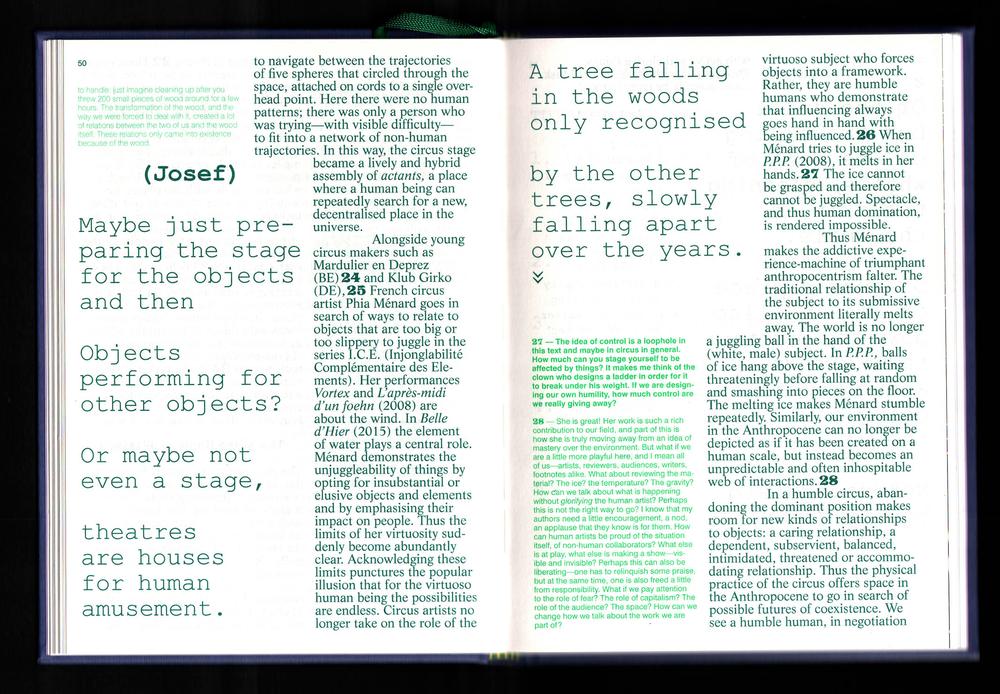 50
to handle: just imagine cleaning up after you
threw 200 small pieces of wood around for a few
hours. The transformation of the wood, and the
way we were forced to deal with it, created a lot
of relations between the two of us and the wood
itself. These relations only came into existence
because of the wood.
(Josef)
Maybe just pre-
paring the stage
for the objects
and then
Objects
performing for
other objects?
Or maybe not
even a stage,
theatres
are houses
for human
amusement.
to navigate between the trajectories
of five spheres that circled through the
space, attached on cords to a single over-
head point. Here there were no human
patterns; there was only a person who
was trying—with visible difficulty—
to fit into a network of non-human
trajectories. In this way, the circus stage
became a lively and hybrid
assembly of actants, a place
where a human being can
repeatedly search for a new,
decentralised place in the
universe.
Alongside young
circus makers such as
Mardulier en Deprez
(BE) 24 and Klub Girko
(DE), 25 French circus
artist Phia Ménard goes in
search of ways to relate to
objects that are too big or
too slippery to juggle in the
series I.C.E. (Injonglabilité
Complémentaire des Ele-
ments). Her performances
Vortex and L'après-midi
d'un foehn (2008) are
about the wind. In Belle
d'Hier (2015) the element
of water plays a central role.
Ménard demonstrates the
unjuggleability of things by
opting for insubstantial or
elusive objects and elements
and by emphasising their
impact on people. Thus the
limits of her virtuosity sud-
denly become abundantly
clear. Acknowledging these
limits punctures the popular
illusion that for the virtuoso
human being the possibilities
are endless. Circus artists no
longer take on the role of the
A tree falling
in the woods
only recognised
by the other
trees, slowly
falling apart
over the years.
27 — The idea of control is a loophole in
this text and maybe in circus in general.
How much can you stage yourself to be
affected by things? It makes me think of the
clown who designs a ladder in order for it
to break under his weight. If we are design-
ing our own humility, how much control are
we really giving away?
28 — She is great! Her work is such a rich
contribution to our field, and part of this is
how she is truly moving away from an idea of
mastery over the environment. But what if we
are a little more playful here, and I mean all
of us—artists, reviewers, audiences, writers,
footnotes alike. What about reviewing the ma-
terial? The ice? the temperature? The gravity?
How can we talk about what is happening
without glorifying the human artist? Perhaps
this is not the right way to go? I know that my
authors need a little encouragement, a nod,
an applause that they know is for them. How
can human artists be proud of the situation
itself, of non-human collaborators? What else
is at play, what else is making a show—vis-
ible and invisible? Perhaps this can also be
liberating—one has to relinquish some praise,
but at the same time, one is also freed a little
from responsibility. What if we pay attention
to the role of fear? The role of capitalism? The
role of the audience? The space? How can we
change how we talk about the work we are
part of?
virtuoso subject who forces
objects into a framework.
Rather, they are humble
humans who demonstrate
that influencing always
goes hand in hand with
being influenced. 26 When
Ménard tries to juggle ice in
P.P.P. (2008), it melts in her
hands. 27 The ice cannot
be grasped and therefore
cannot be juggled. Spectacle,
and thus human domination,
is rendered impossible.
Thus Ménard
makes the addictive expe-
rience-machine of triumphant
anthropocentrism falter. The
traditional relationship of
the subject to its submissive
environment literally melts
away. The world is no longer
a juggling ball in the hand of the
(white, male) subject. In P.P.P., balls
of ice hang above the stage, waiting
threateningly before falling at random
and smashing into pieces on the floor.
The melting ice makes Ménard stumble
repeatedly. Similarly, our environment
in the Anthropocene can no longer be
depicted as if it has been created on a
human scale, but instead becomes an
unpredictable and often inhospitable
web of interactions. 28
In a humble circus, aban-
doning the dominant position makes
room for new kinds of relationships
to objects: a caring relationship, a
dependent, subservient, balanced,
intimidated, threatened or accommo-
dating relationship. Thus the physical
practice of the circus offers space in
the Anthropocene to go in search of
possible futures of coexistence. We
see a humble human, in negotiation